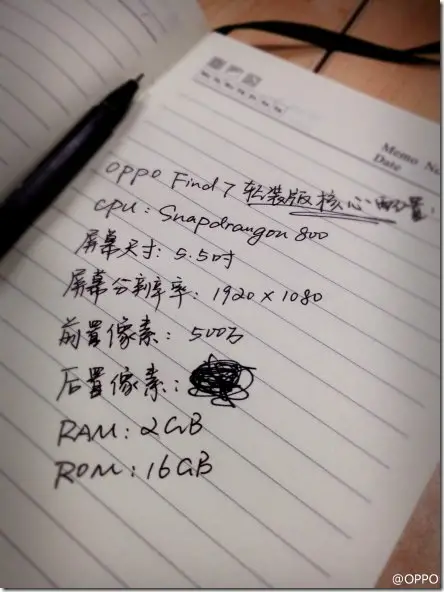 Memo No
Date
OPPO Find 7 轻装版核心配置:
CPU: Snapdrangon 800
屏幕尺寸: 5.5吋
屏幕分辨率: 1920 × 1080
前置像素: 500万
后置像素:
RAM: 2GB
ROM: 16GB
@OPPO